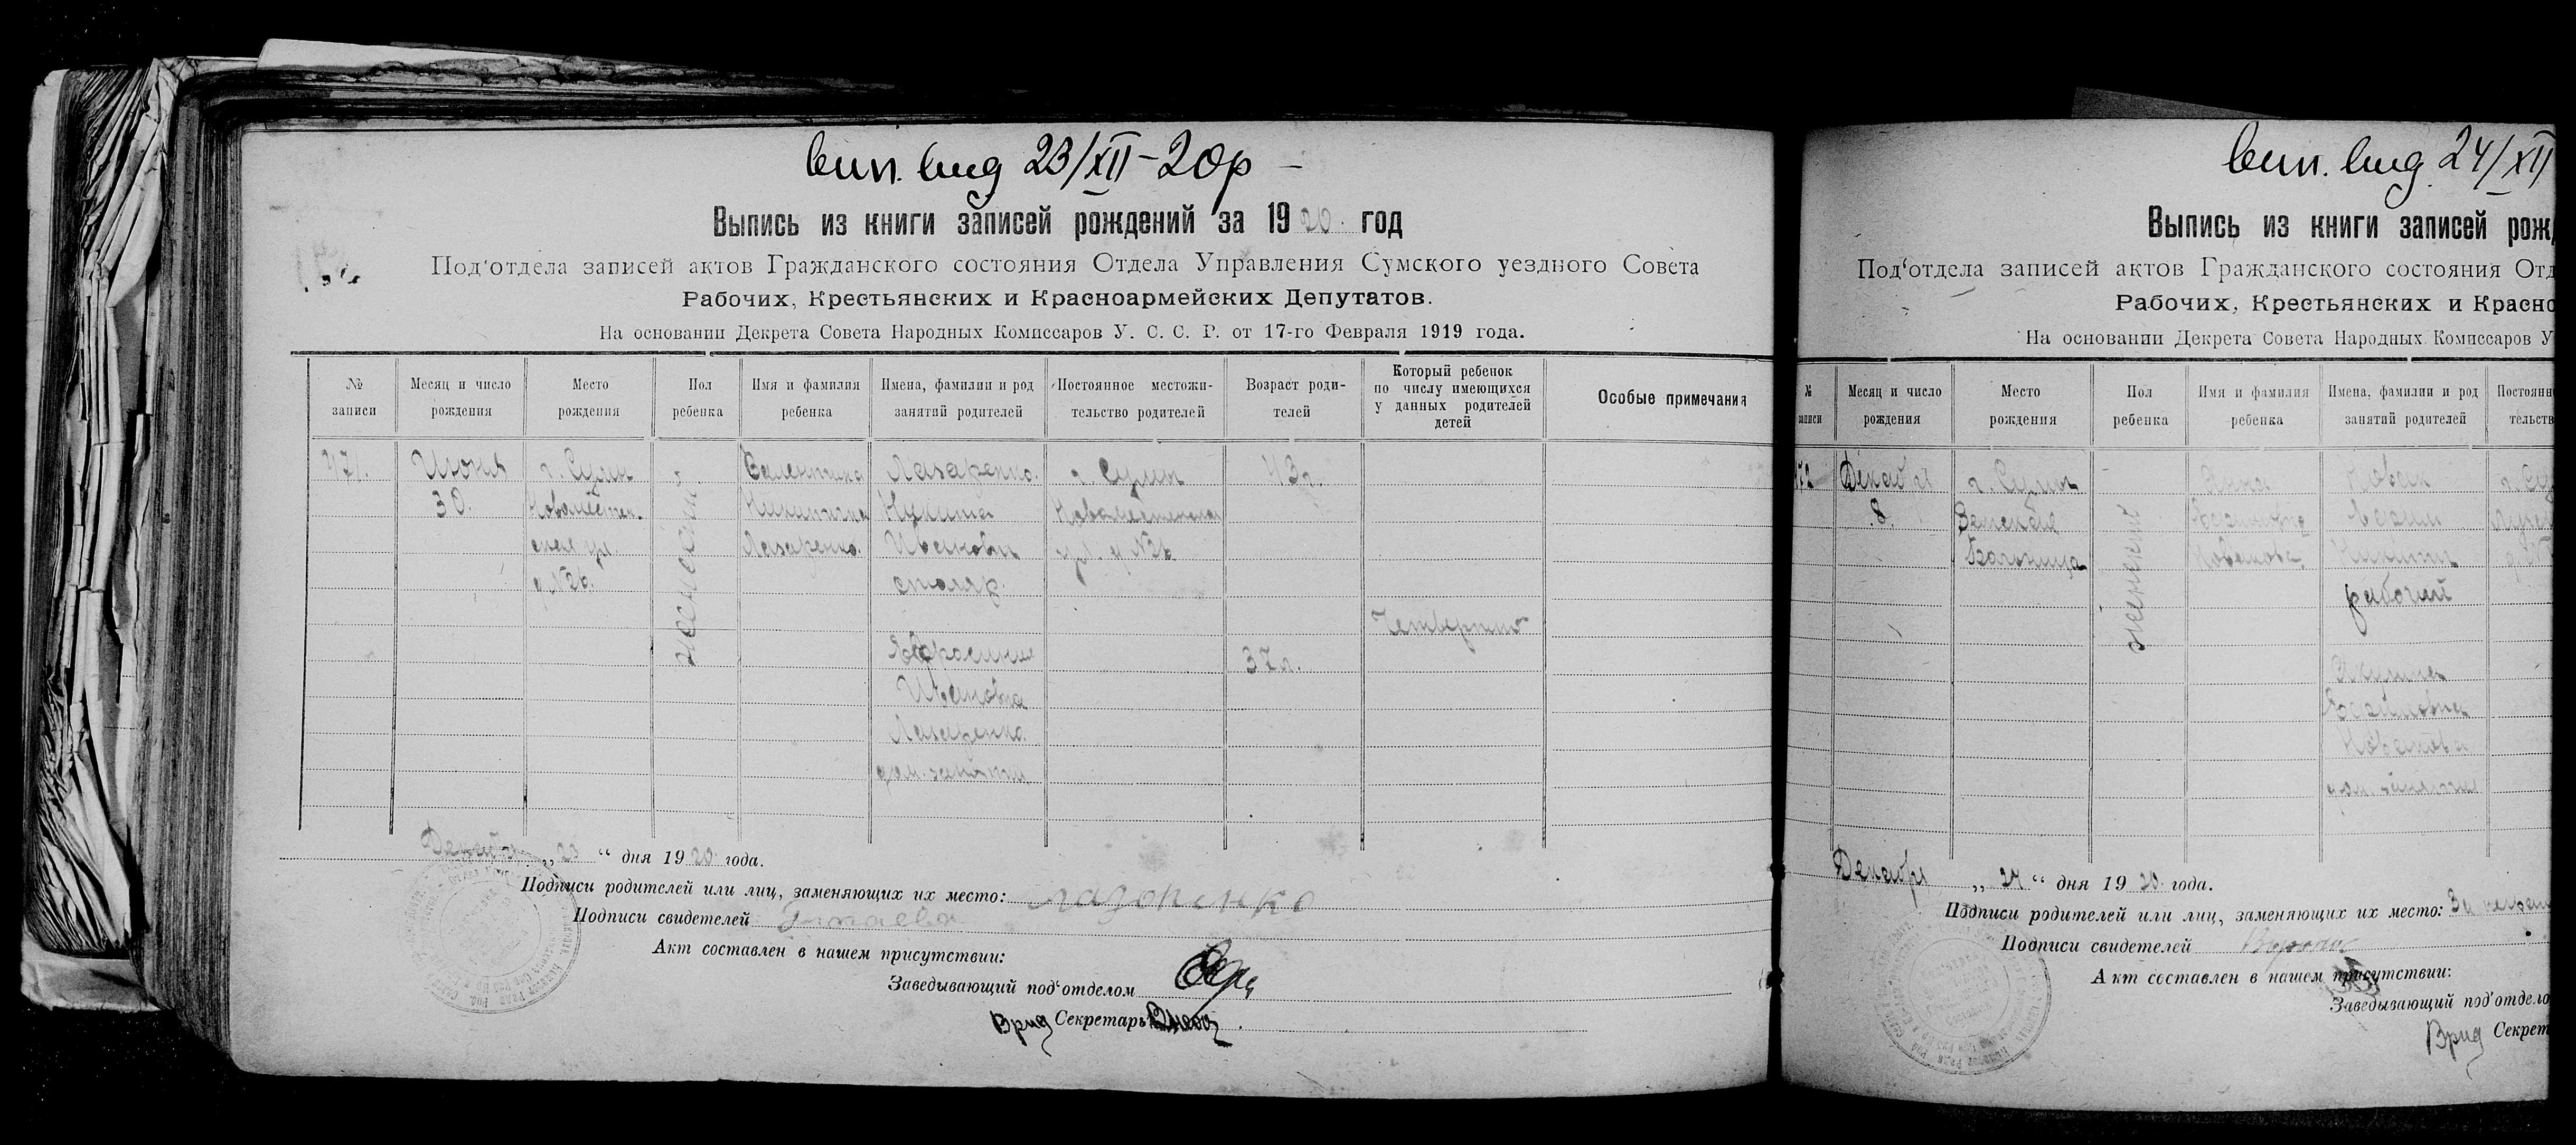 вип. вид 23/XII-20р
Выпись из книги записей рождений за 1920 год
Под‘отдела записей актов Гражданского состояния Отдела Управления Сумского уездного Совета
Рабочих, Крестьянских и Красноармейских Депутатов.
На основании Декрета Совета Народных Комиссаров У. С. С. Р. от 17-го Февраля 1919 года.
№ записи
Месяц и число рождения
Место рождения
Пол ребенка
Имя и фамилия ребенка
Имена, фамилии и род занятий родителей
Постоянное местожительство родителей
Возраст родителей
Который ребенок по числу имеющихся у данных родителей детей
Особые примечания
Июня
30.
г. Сумы
д. № 26.
женский
Валентина
Никитична
Лазаренко.
Лазаренко.
Никита
Иванович
столяр.
Ефросиния
Ивановна
Лазаренко
дом. занятия
г. Сумы
ул. д. № 26
43 г.
37 л.
Четвертый
Декабря „ 23 “ дня 1920 года.
Подписи родителей или лиц, заменяющих их место:
Подписи свидетелей
Акт составлен в нашем присутствии:
Заведывающий под‘отделом
Врид Секретарь
вип. вид 24/XII
Выпись из книги записей рож
Под‘отдела записей актов Гражданского состояния Отд
Рабочих, Крестьянских и Красно
На основании Декрета Совета Народных Комиссаров У
№ записи
Месяц и число рождения
Место рождения
Пол ребенка
Имя и фамилия ребенка
Имена, фамилии и род занятий родителей
Постоянн
тельств
Декабря
8.
г. Сумы
Земская
Больница
женский
рабочий
дом. занятия
Декабря „ 24 “ дня 1920 года.
Подписи родителей или лиц, заменяющих их место:
Подписи свидетелей
Акт составлен в нашем присутствии:
Заведывающий под‘отдело
Врид Секрет